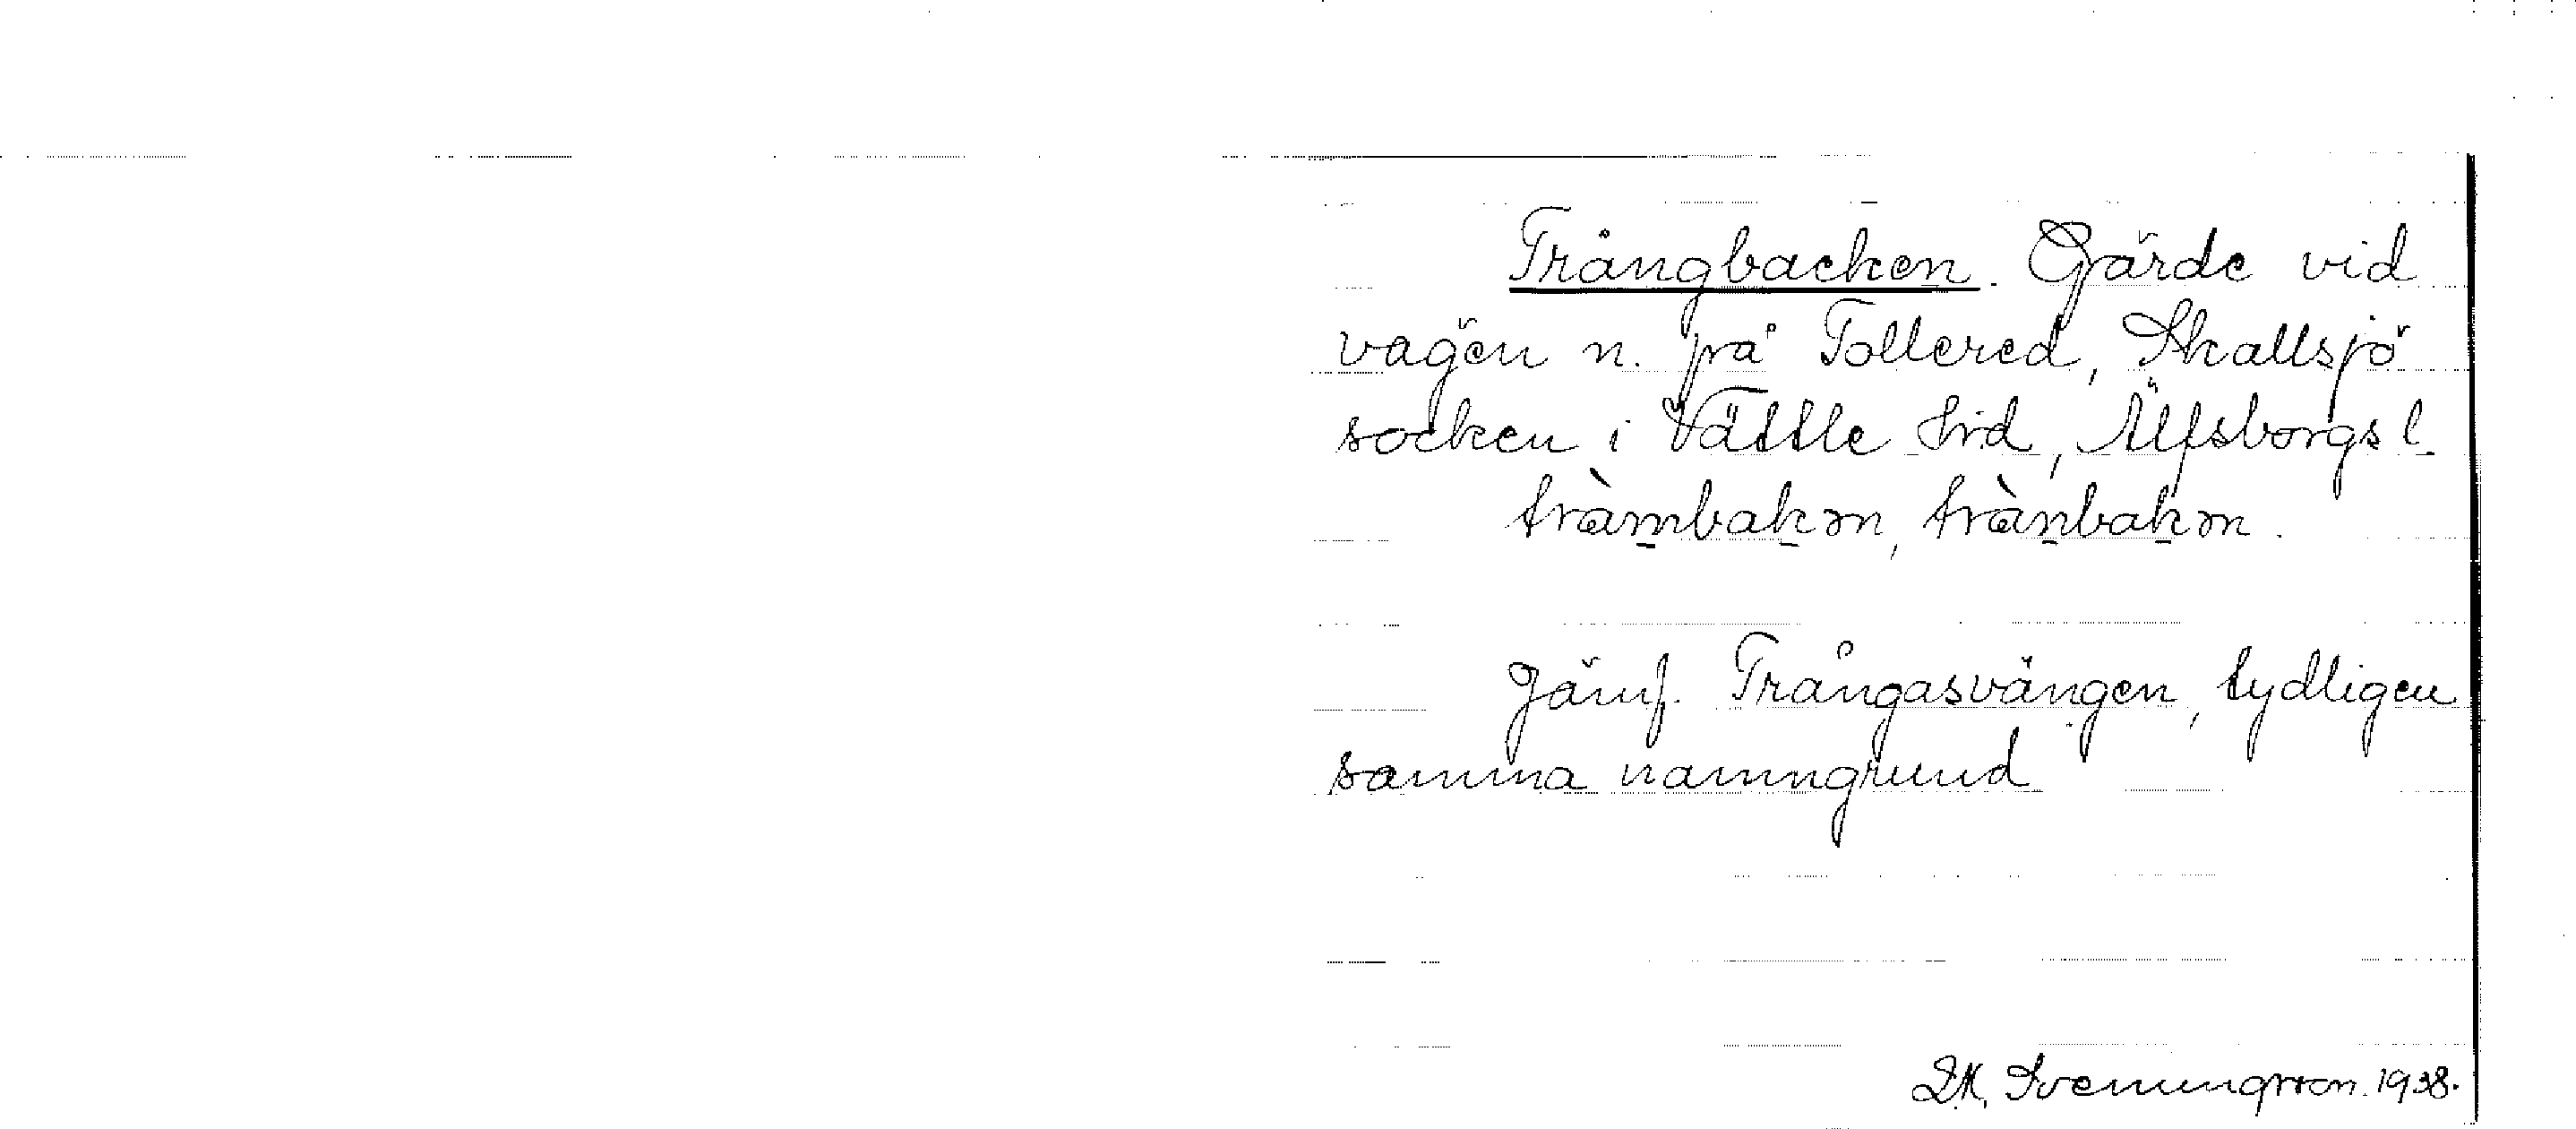 Trångbacken. Gärde vid
vägen n. på Tollered, Skallsjö
socken i Vättle hrd, Älfsborgs l.
tràmbakən, trànbakən.
Jämf. Trångasvängen, tydligen
samma namngrund
D.K. Sveningsson. 1938.